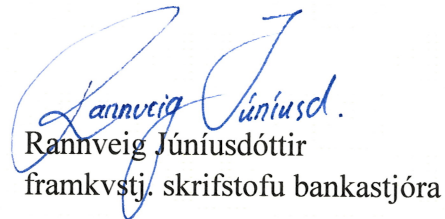 Rannveig Júníusd.
Rannveig Júníusdóttir
framkvstj. skrifstofu bankastjóra